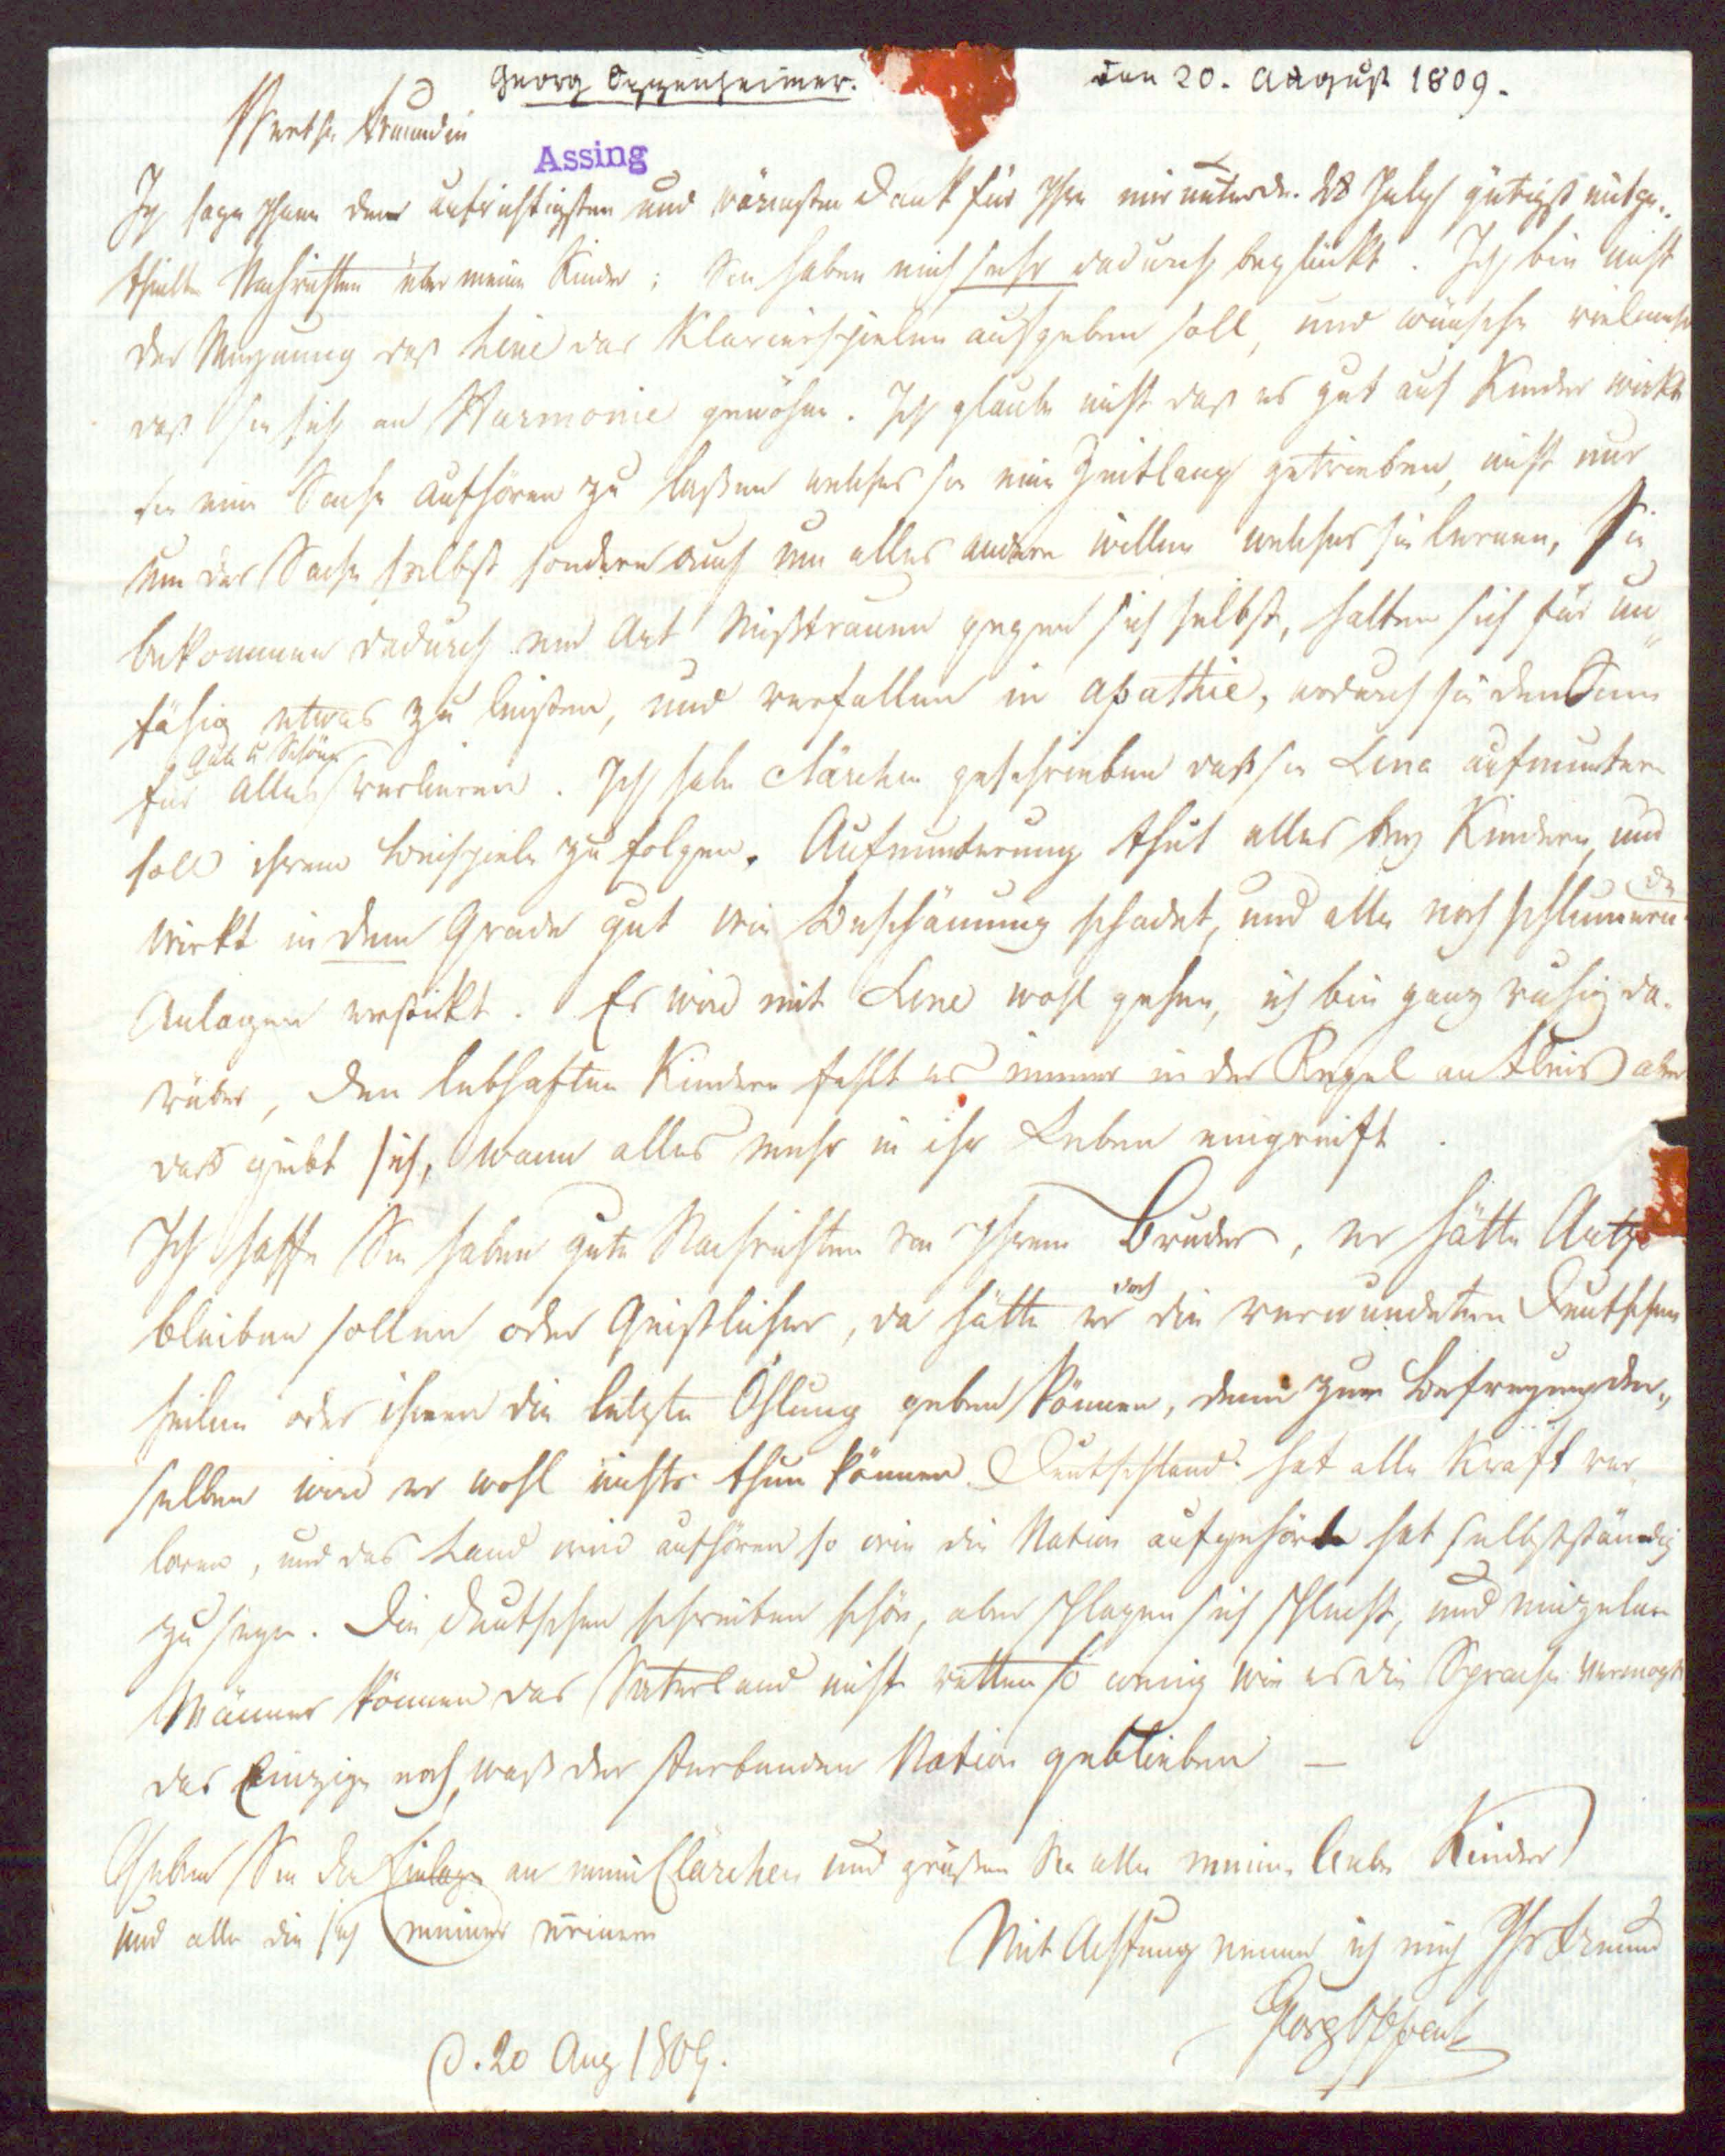 Georg Oppenheimer.
den 20. August 1809.
Werthe Freundin
Assing
Ich sage Ihnen den aufrichtigsten und wärmsten Dank für Ihre mir unterm 28 July gütigst mitge-
theilte Nachrichten über meine Kinder; Sie haben mich sehr dadurch beglückt. Ich bin nicht
der Meynung daß Line das Klavierspielen aufgeben soll, und wünsche vielmehr
daß sie sich an Harmonie gewöhne. Ich glaube nicht daß es gut auf Kinder wirkt
sie eine Sache aufhören zu laßen welches sie eine Zeitlang getrieben, nicht nur
um der Sache selbst sondern auch um alles andere willen welches sie lernen, Sie
bekommen dadurch eine Art Mißtrauen gegen sich selbst, halten sich für un-
fähig etwas zu leisten, und verfallen in apathie, wodurch sie den Sinn
Gute u Schöne
für alles verlieren. Ich habe Clärchen geschrieben daß sie Line aufmuntern
soll ihrem Beispiele zu folgen. Aufmunterung thut alles bey Kindern, und
wirkt in dem Grade gut wie Beschämung schadet, und alle noch schlummern
de
Anlagen erstikt. Es wird mit Line wohl gehen, ich bin ganz ruhig da-
rüber, den lebhaften Kindern fehlt es immer in der Regel an Fleis aber
das giebt sich, wann alles mehr in ihr Leben eingreift.
Ich hoffe Sie haben gute Nachrichten von Ihrem Bruder, er hätte Artzt
bleiben sollen oder Geistlicher, da hätte er die verwundeten Deutschen
doch
heilen oder ihnen die letzte Öhlung geben können, denn zur Befreyung der-
selben wird er wohl nichts thun können. Deutschland hat alle Kraft ver-
loren, und das Land wird aufhören so wie die Nation aufgehört hat selbstständig
zu seyn. Die Deutschen schreiben schön, aber schlagen sich schlecht, und einzelne
Männer können das Vaterland nicht retten so wenig wie es die Sprache vermogt
das Einzige noch, was der sterbenden Nation geblieben —
Geben Sie die Einlage an meine Clärchen und grüßen Sie alle meine liebe Kinder
und alle die sich meiner erinnern
Mit Achtung nenne ich mich Ihr Freund
Georg Oppenh
d. 20 Aug 1809.